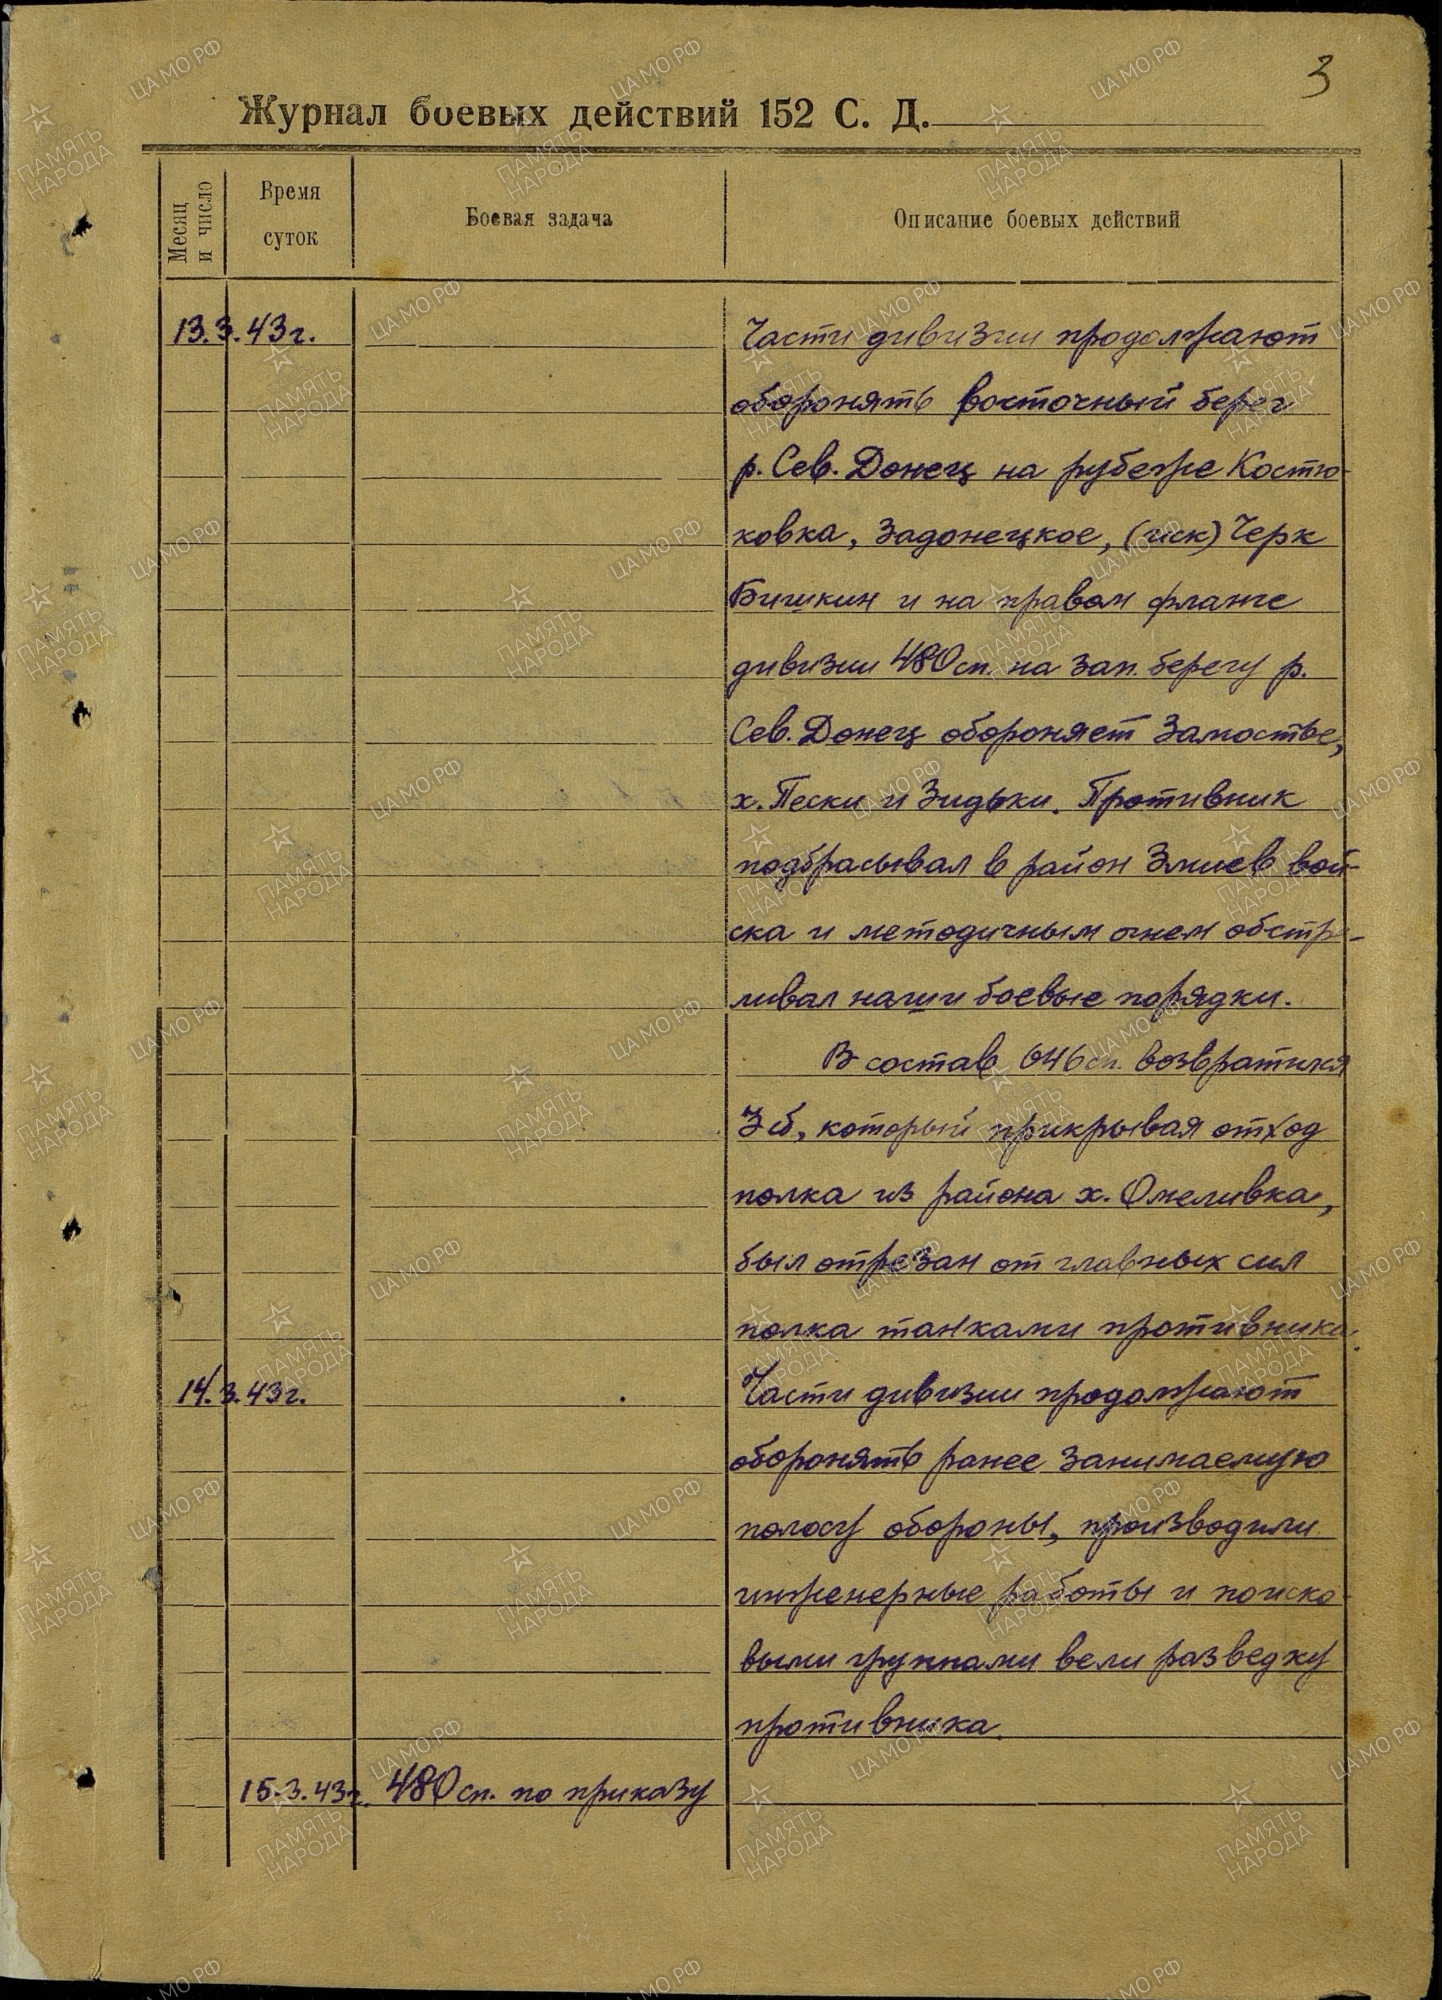 3
Журнал боевых действий 152 С. Д.
Месяц и число
Время суток
Боевая задача
Описание боевых действий
13.3.43г.
Части дивизии продолжают
оборонять восточный берег
р. Сев. Донец на рубеже Костю-
ковка, Задонецкое, (иск) Черк
Бишкин и на правом фланге
дивизии 480 сп. на зап. берегу р.
Сев. Донец обороняет Замостье,
х. Пески и Зидьки. Противник
подбрасывал в район Змиев вой-
ска и методичным огнем обстре-
ливал наши боевые порядки.
В состав 646 сп. возвратился
3 сб, который прикрывая отход
полка из района х. Омеливка,
был отрезан от главных сил
полка танками противника.
14.3.43г.
Части дивизии продолжают
оборонять ранее занимаемую
полосу обороны, производили
инженерные работы и поиско-
выми группами вели разведку
противника.
15.3.43г. 480 сп. по приказу
ЦА МО РФ
ПАМЯТЬ НАРОДА